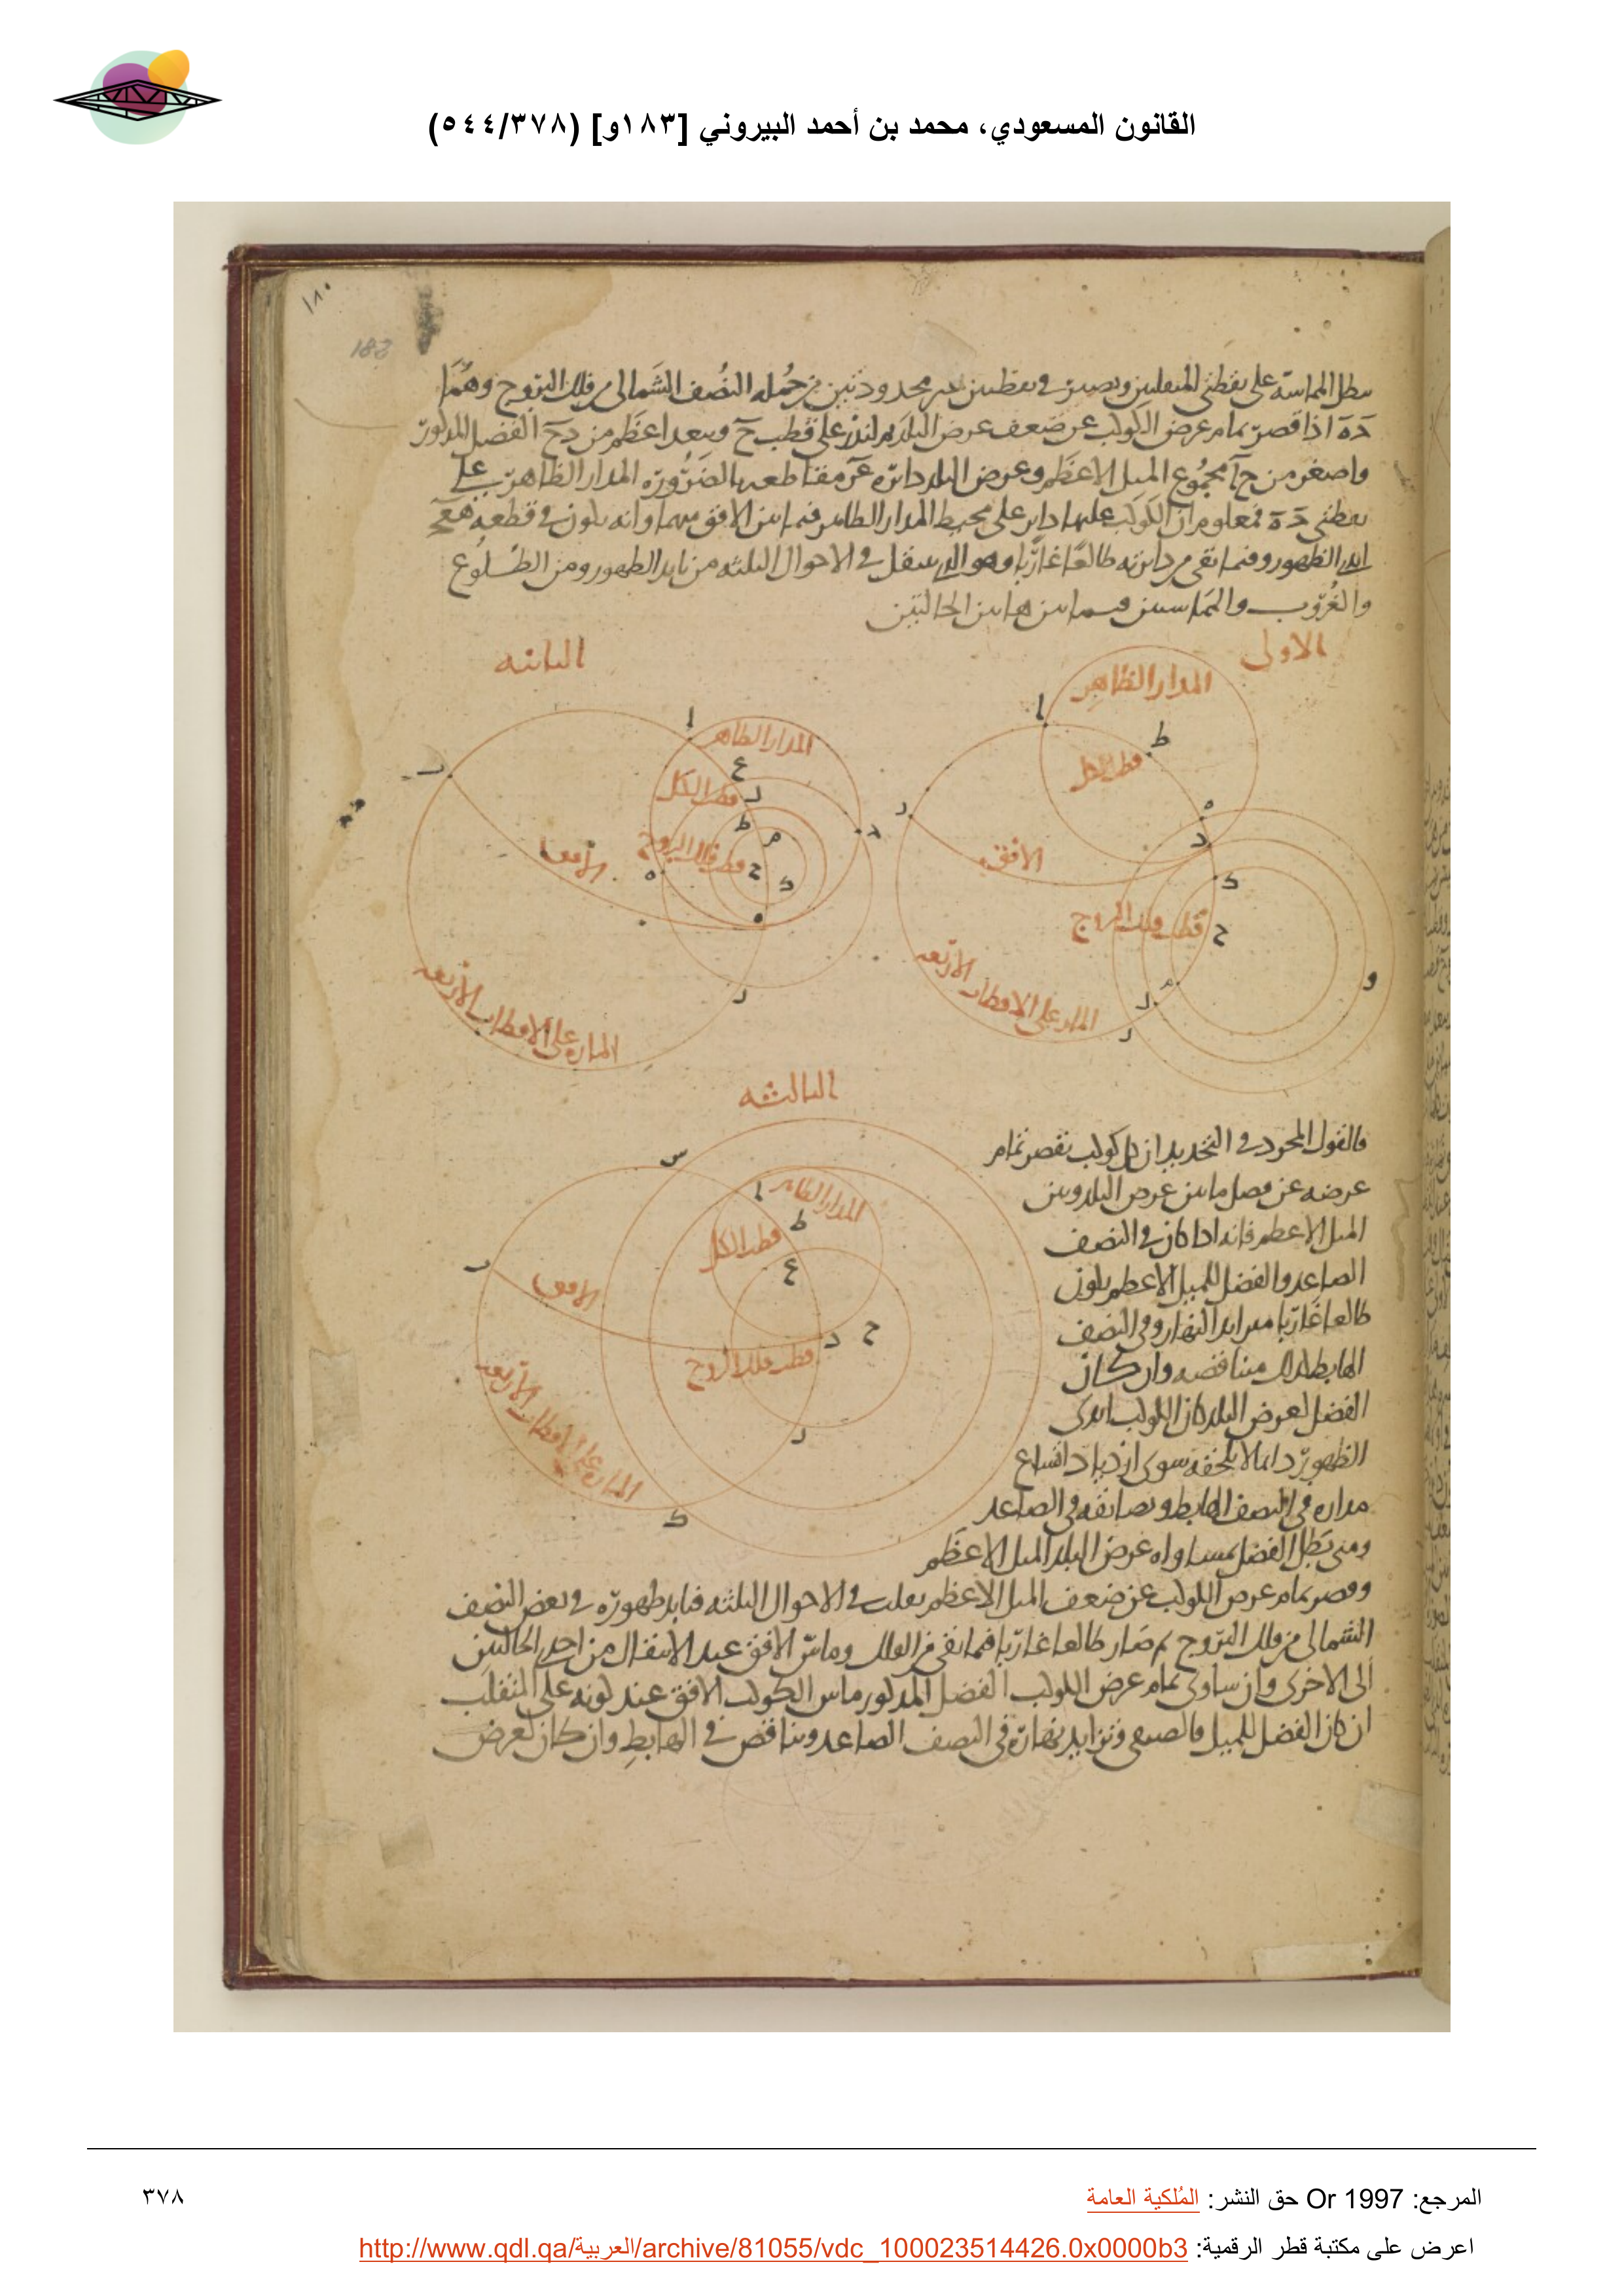 القانون المسعودي، محمد بن أحمد البيروني [١٨٣و] (٥٤٤/٣٧٨)
١٨٠
183
تبطل المماسة على نقطتي المنقلبين ويصير في نقطتين غير محدودتين من جمله النصف الشمالى من فلك البروج وهما
دَ هَ اذا قصر تمام عرض الكوكب عن ضعف عرض البلد ثم لندر على قطب حَ وببعد اعظم من دَحَ الفضل المذكور
واصغر من حَاَ مجموع الميل الاعظم وعرض البلد دائره مقاطعه بالضرورة المدار الظاهر على
نقطتى دَ هَ فمعلوم ان الكوكب عليها دائر على محيط المدار الظاهر فيما بين الافق وانه يكون في قطعه
ابدى الظهور وفيما بقى من دائرته طالعا غاربا وهو الذى ينتقل في الاحوال الثلثه من تابد الظهور ومن الطلوع
والغروب والمماستين فيما بين هاتين الحالتين
الاولى
الثانيه
المدار الظاهر
المدار الظاهر
ا
ا
ط
قطب الكل
ع
قطب الكل
ر
ه
د
الافق
الافق
ط
ح
ك
قطب فلك البروج
قطب فلك البروج
ح
و
الماره على الاقطاب الاربعه
الماره على الاقطاب الاربعه
الثالثه
فالقول المجرد في التحديد ان كل كوكب يقصر تمام
عرضه عن فضل ما بين عرض البلد وبين
الميل الاعظم فانه اذا كان في النصف
الصاعد والفضل للميل الاعظم يكون
طالعا غاربا متزايد النهار وفي النصف
الهابط كذلك متناقصه وان كان
الفضل لعرض البلد كان الكوكب ابدى
الظهور دائما لا يلحقه سوى ازدياد اتساع
مداره في النصف الهابط وتضايقه في الصاعد
ومتى بطل الفضل بمساواه عرض البلد الميل الاعظم
وقصر تمام عرض الكوكب عن ضعف الميل الاعظم تقلب في الاحوال الثلثه فتابد ظهوره في بعض النصف
الشمالى من فلك البروج ثم صار طالعا غاربا فيما بقى من الفلك وماس الافق عند الانتقال من احدى الحالتين
الى الاخرى وان ساوى تمام عرض الكوكب الفضل المذكور ماس الكوكب الافق عند كونه على المنقلب
ان كان الفضل للميل فالصيفى وتزايد نهاره في النصف الصاعد وتناقص في الهابط وان كان لعرض
س
ا
المدار الظاهر
ط
قطب الكل
ع
ر
الافق
ح
د
قطب فلك البروج
ك
الماره على الاقطاب الاربعه
المرجع: Or 1997 حق النشر: المُلكية العامة
٣٧٨
اعرض على مكتبة قطر الرقمية: http://www.qdl.qa/العربية/archive/81055/vdc_100023514426.0x0000b3